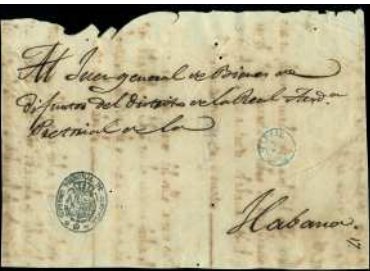 Al Juez general de Bienes de
difuntos del distrito de la Real Aud.a
Pretorial de la
Habana.